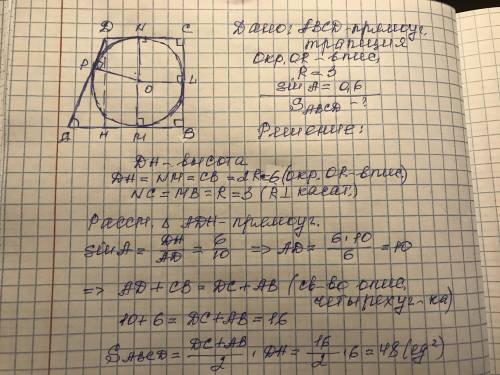 D N C
P
O L
A H M B
Дано: ABCD-прямоуг.
трапиция
Окр. OR-впис,
R = 3
sin A = 0,6
S ABCD - ?
Решение:
DH - высота
DH = NM = CB = 2R = 6 (Окр. OR-впис)
NC = MB = R = 3 (R ⊥ касат.)
Рассм. Δ ADH - прямоуг.
sin A = DH/AD = 6/10 => AD = 6·10/6 = 10
=> AD + CB = DC + AB (св-во опис,
четырехуг-ка)
10 + 6 = DC + AB = 16
S ABCD = DC + AB/2 · DH = 16/2 · 6 = 48 (ед²)